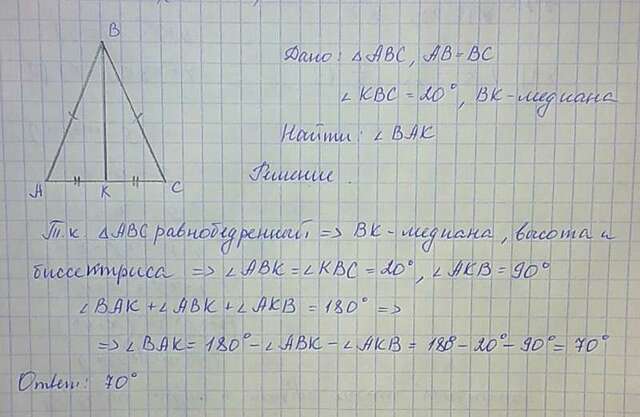 B
A
K
C
Дано: △ABC, AB=BC
∠KBC = 20°, BK-медиана
Найти: ∠BAK
Решение.
Т.к. △ABC равнобедренный => BK-медиана, высота и
биссектриса => ∠ABK = ∠KBC = 20°, ∠AKB = 90°
∠BAK + ∠ABK + ∠AKB = 180° =>
=> ∠BAK = 180° - ∠ABK - ∠AKB = 180 - 20° - 90° = 70°
Ответ: 70°